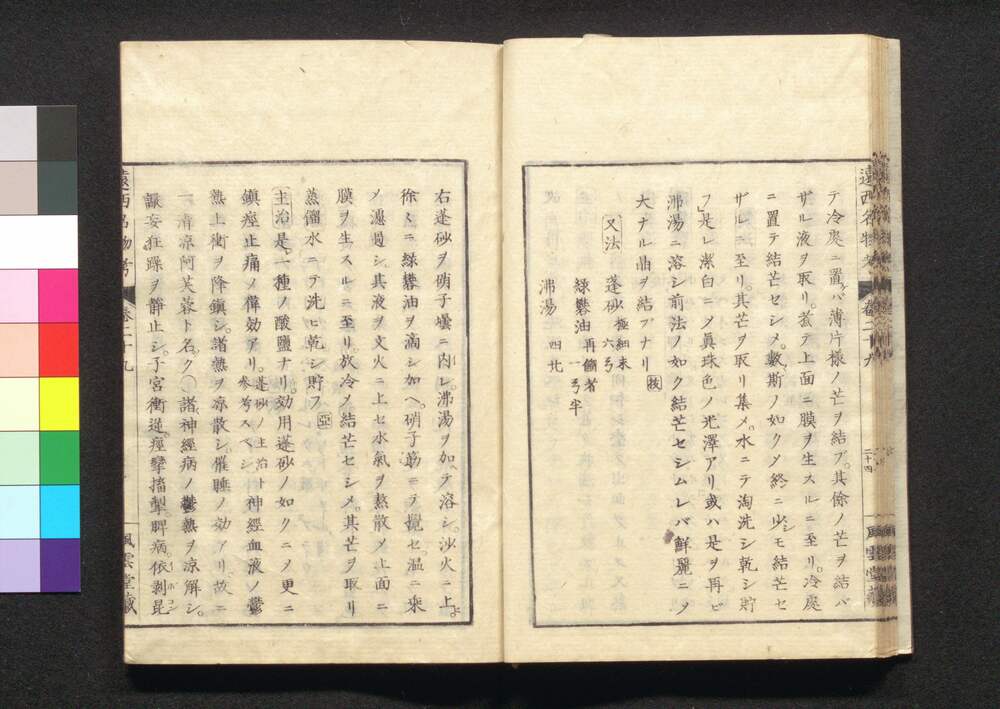 遠西名物考 卷二十九 二十四 風雲堂藏
テ冷處ニ置ケバ薄片様ノ芒ヲ結ブ。其餘ノ芒ヲ結バ
ザル液ヲ取リ。煮テ上面ニ膜ヲ生スルニ至リ。冷處
ニ置テ結芒セシメ。數斯ノ如クメ終ニ少シモ結芒セ
ザルニ至リ。其芒ヲ取リ集メ。水ニテ淘洗シ乾シ貯
フ」是レ潔白ニメ眞珠色ノ光澤アリ或ハ是ヲ再ビ
沸湯ニ溶シ前法ノ如ク結芒セシムレバ鮮麗ニメ
大ナル晶ヲ結ブナリ 核
又法 蓬砂 極細末 六弓
緑礬油 再餾者 一弓半
沸湯 四
右蓬砂ヲ硝子壜ニ内レ。沸湯ヲ加ヘテ溶シ。沙火ニ上セ。
徐々ニ緑礬油ヲ滴シ加ヘ。硝子筋ニテ攪セ。温ニ乘
メ濾過シ其液ヲ文火ニ上セ水氣ヲ熬散メ上面ニ
膜ヲ生スルニ至リ。放冷メ結芒セシメ。其芒ヲ取リ
蒸餾水ニテ洗ヒ乾シ貯フ 亞
主治 是一種ノ酸鹽ナリ。効用蓬砂ノ如クニメ更ニ
鎮痙止痛ノ偉効アリ。蓬砂ノ主治ト参考スベシ 神經血液ノ鬱
熱上衝ヲ降鎮シ。諸熱ヲ凉散シ。催睡ノ効アリ故ニ
一清凉阿芙蓉ト名ク○諸神經病ノ鬱熱ヲ凉解シ。
譫妄狂躁ヲ静止シ。子宮衝逆。痙攣搐掣脾病。依剥昆
遠西名物考 卷二十九 風雲堂藏